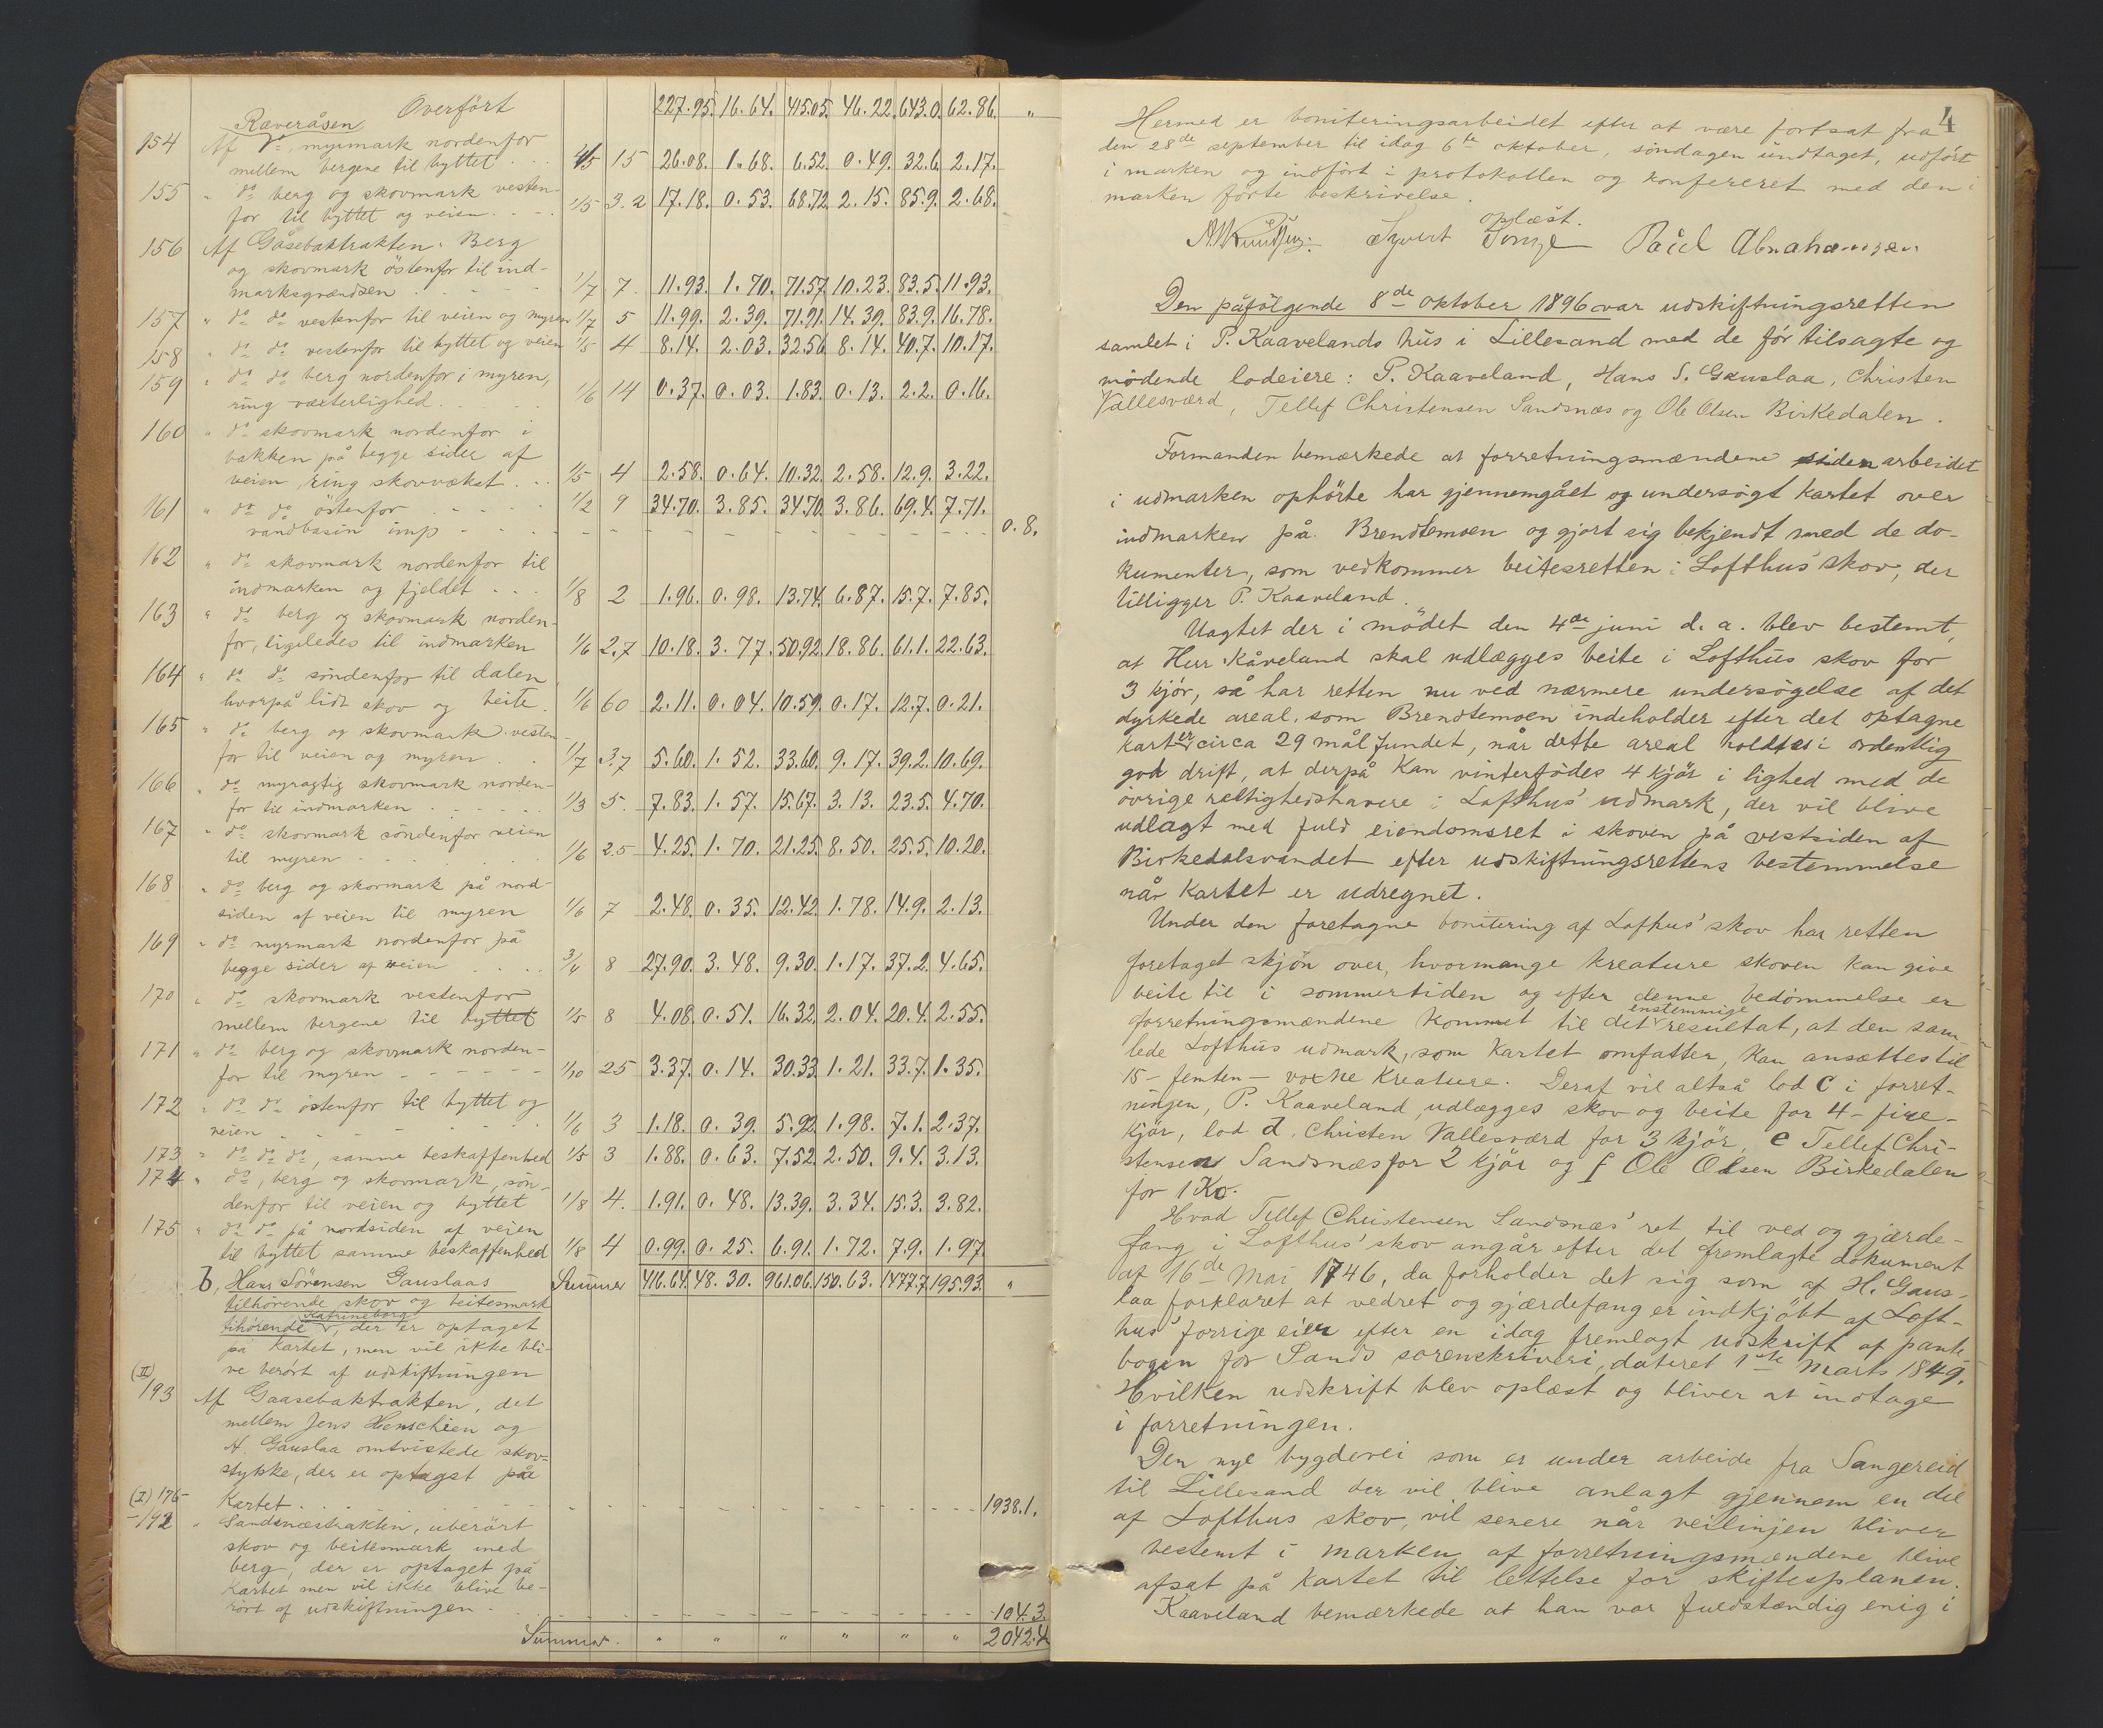 Overført 227.95. 16.64. 415.05. 46.22. 643.0. 62.86. "
Ræveråsen
154 Af Vn myrmark nordenfor
mellem bergene til byttet . . . 4/5 15 26.08. 1.68. 6.52. 0.49. 32.6. 2.17.
155 " do berg og skovmark vesten-
for til byttet og veien . . . 1/5 3.2 17.18. 0.53. 68.72 2.15. 85.9. 2.68.
156 Af Gåsebaktrakten: Berg
og skovmark östenfor til ind-
marksgrændsen . . . . 1/7 7. 11.93. 1.70. 71.57. 10.23. 83.5. 11.93.
157 " do do vestenfor til veien og myren 1/7 5 11.99. 2.39. 71.91. 14.39. 83.9. 16.78.
158 " do do vestenfor til byttet og veien 1/5 4 8.14. 2.03. 32.56 8.14. 40.7. 10.17.
159 " do do berg nordenfor i myren,
ring væxterlighed . . . . 1/6 14 0.37. 0.03. 1.83. 0.13. 2.2. 0.16.
160 " do skovmark nordenfor i
bakken på begge sider af
veien, ring skovvækst . . . 1/5 4 2.58. 0.64. 10.32. 2.58. 12.9. 3.22.
161 " do do östenfor . . . . 1/2 9 34.70. 3.85. 34.70. 3.86. 69.4. 7.71.
vandbasin imp - - - - 0.8.
162 " do skovmark nordenfor til
indmarken og fjeldet . . . 1/8 2 1.96. 0.98. 13.74. 6.87. 15.7. 7.85.
163 " do berg og skovmark norden-
for, ligeledes til indmarken 1/6 2.7 10.18. 3.77. 50.92. 18.86. 61.1. 22.63.
164 " do do söndenfor til dalen,
hvorpå lidt skov og beite. 1/6 60 2.11. 0.04. 10.59. 0.17. 12.7. 0.21.
165 " do berg og skovmark vesten-
for til veien og myren . . 1/7 3.7 5.60. 1.52. 33.60. 9.17. 39.2. 10.69.
166 " do myragtig skovmark norden-
for til indmarken . . . . 1/3 5. 7.83. 1.57. 15.67. 3.13. 23.5. 4.70.
167 " do skovmark söndenfor veien
til myren - . . . . 1/6 2.5 4.25. 1.70. 21.25. 8.50. 25.5. 10.20.
168 " do berg og skovmark på nord-
siden af veien til myren 1/6 7 2.48. 0.35. 12.42 1.78. 14.9. 2.13.
169 " do myrmark nordenfor på
begge sider af veien . . . . 3/4 8 27.90. 3.48. 9.30. 1.17. 37.2. 4.65.
170 " do skovmark vestenfor
mellem bergene til byttet 1/5 8 4.08. 0.51. 16.32. 2.04. 20.4. 2.55.
171 " do berg og skovmark norden-
for til myren - - - - - 1/10 25 3.37. 0.14. 30.33. 1.21. 33.7. 1.35.
172 " do do östenfor til byttet og
veien . . . . . 1/6 3 1.18. 0.39. 5.92. 1.98. 7.1. 2.37.
173 " do do do, samme beskaffenhed 1/5 3 1.88. 0.63. 7.52. 2.50. 9.4. 3.13.
174 " do, berg og skovmark, sön-
denfor til veien og byttet 1/8 4. 1.91. 0.48. 13.39. 3.34. 15.3. 3.82.
175 " do do på nordsiden af veien
til byttet samme beskaffenhed 1/8 4 0.99. 0.25. 6.91. 1.72. 7.9. 1.97.
b, Hans Sörensen Gauslaas Summer 416.64. 48.30. 961.06. 150.63. 1477.7. 195.93. "
tilhörende skov og beitesmark
Katrineborg
tihörende, der er optaget
på kartet, men vil ikke bli-
ve berört af udskiftningen
(II) 193 Af Gaasebaktrakten, det
mellem Jens Henschien og
H. Gauslaa omtvistede skov-
stykke, der er optagst på
Kartet . . . . 1938.1.
(I) 176-
-192 " Sandsnæstrakten, uberört
skov og beitesmark med
berg, der er optaget på
Kartet men vil ikke blive be-
rört af udskiftningen - 104.3.
Summer. " " " " " " 2042.4
4
Hermed er boniteringsarbeidet efter at være fortsat fra
den 28de september til idag 6te oktober, söndagen undtaget, udfört
i marken og indfört i protokollen og konfereret med den i
marken förte beskrivelse.
oplæst.
Syvert Paul Abrahamsen
Den påfölgende 8de oktober 1896 var udskiftningsretten
samlet i P. Kaavelands hus i Lillesand med de för tilsagte og
mödende lodeiere: P. Kaaveland, Hans S. Gauslaa, Christen
Vallesværd, Tellef Christensen Sandsnæs og Ole Olsen Birkedalen.
Formanden bemærkede at forretningsmændene siden arbeidet
i udmarken ophörte har gjennemgået og undersögt kartet over
indmarken på Brendtemoen og gjort sig bekjendt med de do-
kumenter, som vedkommer beitesretten i Lofthus' skov, der
tilligger P. Kaaveland.
Uagtet der i mödet den 4de juni d. a. blev bestemt,
at Herr Kåveland skal udlægges beite i Lofthus skov for
3 kjör, så har retten nu ved nærmere undersögelse af det
dyrkede areal, som Brendtemoen indeholder efter det optagne
kart er circa 29 mål fundet, når dette areal holdtes i ordentlig
god drift, at derpå kan vinterfödes 4 kjör i lighed med de
övrige rettighedshavere i Lofthus' udmark, der vil blive
udlagt med fuld eiendomsret i skoven på vestsiden af
Birkedalsvandet efter udskiftningsrettens bestemmelse
når kartet er udregnet.
Under den foretagne bonitering af Lofhus' skov har retten
foretaget skjön over, hvormange kreature skoven kan give
beite til i sommertiden og efter denne bedömmelse er
enstemmige
forretningsmændene kommet til det resultat, at den sam-
lede Lofthus udmark, som kartet omfatter, kan ansættes til
15 - femten - voxne kreature. Deraf vil altså lod C i forret-
ningen, P. Kaaveland udlægges skov og beite for 4 - fire -
kjör, lod d, Christen Vallesværd for 3 kjör, e Tellef Chri-
stensen Sandsnæs for 2 kjör og f Ole Olsen Birkedalen
for 1 Ko.
Hvad Tellef Christensen Sandsnæs' ret til ved og gjærde-
fang i Lofthus' skov angår efter det fremlagte dokument
af 16de Mai 1746, da forholder det sig som af H. Gaus-
laa forklaret at vedret og gjærdefang er indkjöbt af Loft-
hus' forrige eier efter en idag fremlagt udskrift af pante-
bogen for Sands sorenskriveri, dateret 1ste Marts 1849.
Hvilken udskrift blev oplæst og bliver at indtage
i forretningen.
Den nye bygdevei som er under arbeide fra Sangereid
til Lillesand der vil blive anlagt gjennem en del
af Lofthus skov, vil senere når veilinjen bliver
bestemt i marken af forretningsmændene blive
afsat på kartet til lettelse for skiftesplanen.
Kaaveland bemærkede at han var fuldstændig enig i